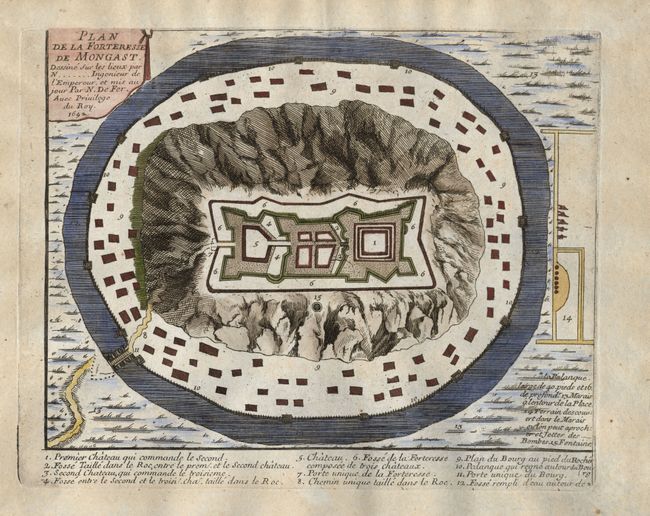 PLAN
DE LA FORTERESSE
DE MONGAST.
Dessiné sur les lieux par
N....... Ingenieur de
l'Empereur, et mis au
jour Par N. De Fer.
Avec Privilege
du Roy.
1692
13
9
10
6
5
1
15
14
la Palangue
large de 40. pieds et 16.
de profond. 13. Marais
à lentour de la Place
14. Terrain descouvert
dans le Marais
ou l'on peut aproch
er et Jetter des
Bombes. 15. Fontaine.
1. Premier Château qui commande le Second.
2. Fossé Taillé dans le Roc, entre le prem.r et le Second château.
3. Second Chateau, qui commande le troisieme.
4. Fossé entre le Second et le troisi.e Cha.u taillé dans le Roc.
5. Château. 6. Fossé de la Forteresse
composée de trois châteaux.
7. Porte unique de la Forteresse.
8. Chemin unique taillé dans le Roc.
9. Plan du Bourg au pied du Rocher
10. Palangue qui regne autour du Bou
11. Porte unique du Bourg.
12. Fossé rempli d'eau autour de